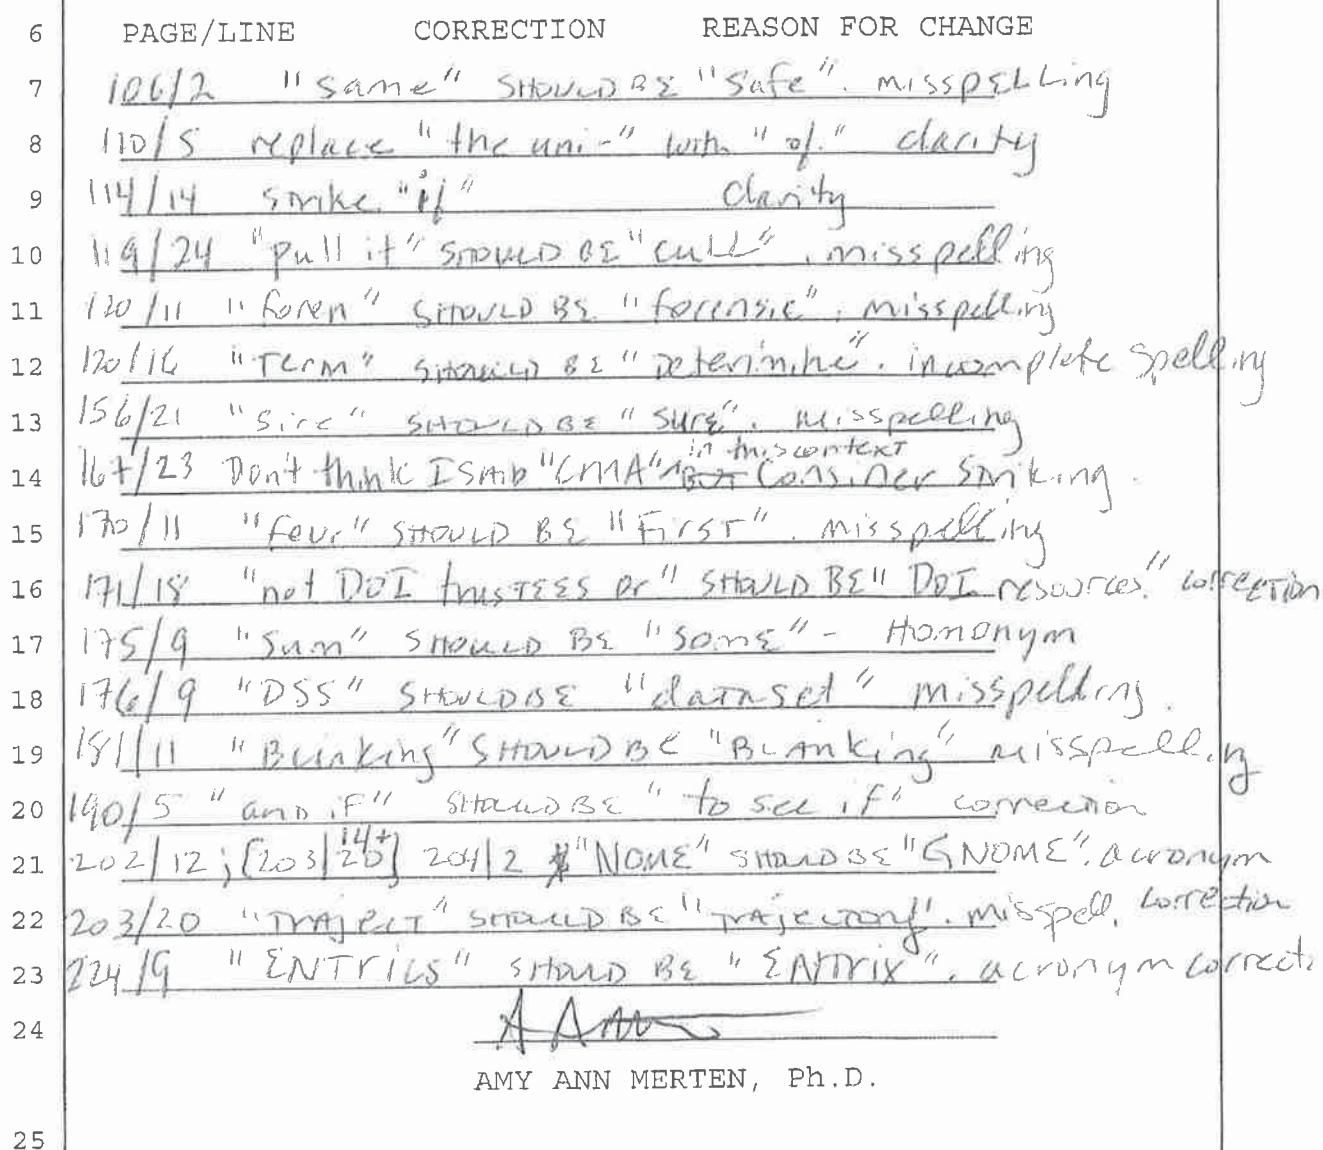 6 PAGE/LINE CORRECTION REASON FOR CHANGE
7 106/2 "Same" SHOULD BE "Safe". misspELLing
8 110/5 replace "the uni-" with "of." clarity
9 114/14 strike "if" Clarity
10 119/24 "Pull it" SHOULD BE "CULL". misspelling
11 120/11 "foren" SHOULD BE "forensic". misspelling
12 120/16 "Term" SHOULD BE "Determine". incomplete Spelling
13 156/21 "Sire" SHOULD BE "Sure". Misspelling
in this context
14 167/23 Don't think I SAID "CMA" BUT Consider Striking.
15 170/11 "Feur" SHOULD BE "First". misspelling
16 171/18 "not DOI trusTEES or" SHOULD BE "DOI resources." correction
17 175/9 "Sum" SHOULD BE "Some" - Homonym
18 176/9 "DSS" SHOULD BE "dataset" misspelling.
19 181/11 "Blinking" SHOULD BE "BLANKing" misspelling
20 190/5 "and if" SHOULD BE "to see if" correction
14+
21 202/12; [203/20] 204/2 "NOME" SHOULD BE "GNOME". acronym
22 203/20 "TRAJECT" SHOULD BE "TRAJECTORY". misspell. correction
23 224/9 "ENTRICS" SHOULD BE "ENTRIX". acronym correct.
24
AMY ANN MERTEN, Ph.D.
25